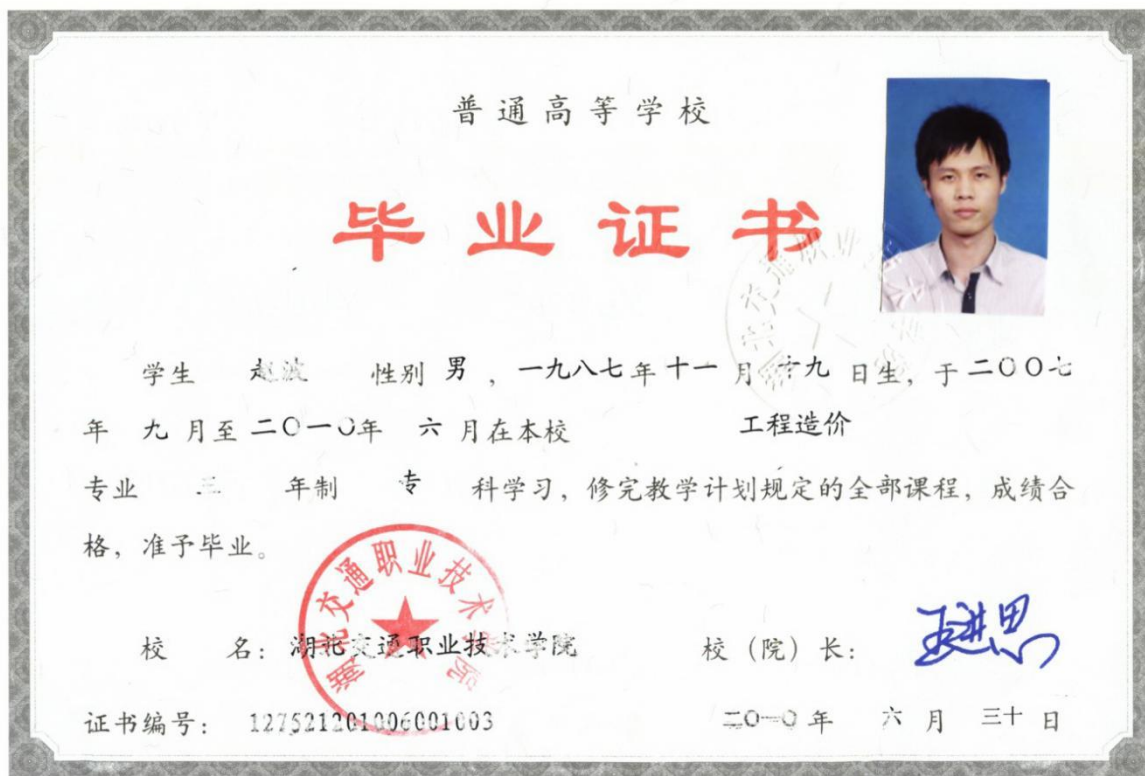 普通高等学校
毕业证书
学生 赵波 性别 男 ，一九八七年十一月十九日生，于二〇〇七
年 九 月至二〇一〇年 六 月在本校 工程造价
专业 三 年制 专 科学习，修完教学计划规定的全部课程，成绩合
格，准予毕业。
湖北交通职业技术学院
校 名：湖北交通职业技术学院 校（院）长：王进思
证书编号：127521201006001003 二〇一〇年 六 月 三十 日